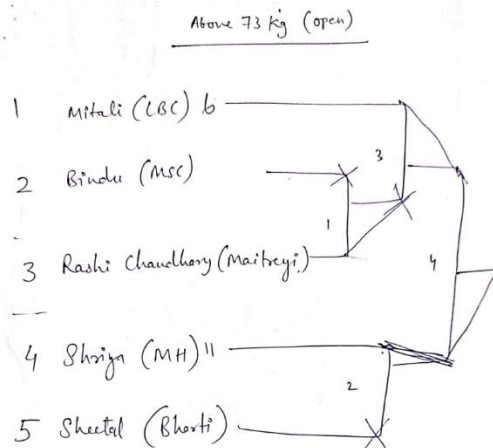 Above 73 kg (open)
1 Mitali (LBC) 6
2 Bindu (MSC)
3 Rashi Chaudhary (Maitreyi)
4 Shriya (MH) 11
5 Sheetal (Bharti)
3
1
4
2